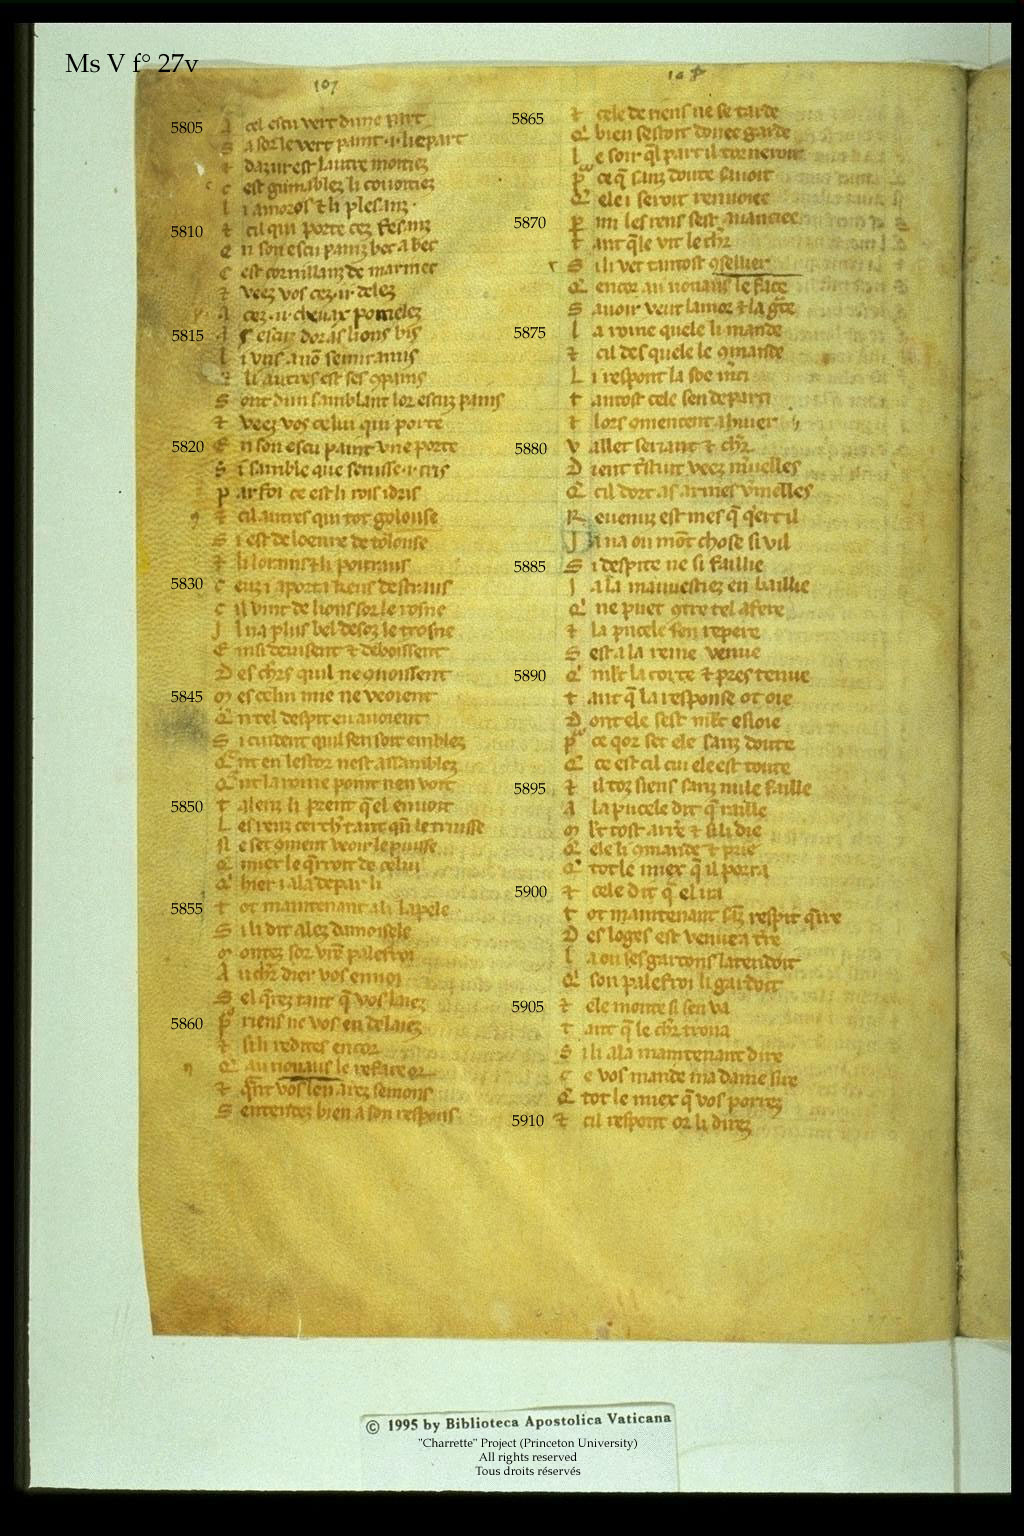 Ms V f° 27v
107
5805 cel escu vert dune part
S a sor le vert paint .i. liepart
t dazur est lautre moitiez
c est guimablez li covoitiez
l i amoros t li plesanz
5810 t cil qui porte cez fesanz
e n son escu painz bec a bec
c est cornillanz de marinec
t veez vos cez .ii. delez
A cez .ii. chevax pomelez
5815 A s escuz doras lions bis
l i uns a nō semiramis
t li autres est ses ꝯpainz
S ont dun samblant lor escuz painz
t veez vos celui qui porte
5820 E n son escu paint une porte
S i samble que sen isse .i. cers
p ar foi ce est li rois idris
t cil autres qui tot golouse
S i est de loevre de tolouse
t li lorains t li poitraus
5830 c euz i aporta kens destraus
c il vint de lions sor le rosne
J l na plus bel desoz le trosne
E insi devisent t deboissent
D es chrs quil ne ꝯnoissent
5845 m es celui mie ne veoient
Q̄ n tel despit eu avoient
S i cuident quil sen soit emblez
Q̄nt en lestor nest assamblez
Q̄nt la roine point nen voit
5850 t alenz li prent q̄ el envoit
L es renz cerch tant qn̄ le truisse
N e set ꝯment veoir le puisse
Q miex le q̄rroit de celui
Q' hier i ala depar li
5855 t ot maintenant a li lapele
S i li dit alez damoisele
m ontez sor vr̄e palefroi
A u chr̄ dier vos envoi
S el q̄rez tant q̄ vos laiez
5860 P' riens ne vos en delaiez
t si li redites encor
Q' au nouaus le reface or
t q̄nt vos len arez semons
S entendez bien a son respons
5865 t cele de riens ne se tarde
Q' bien sestoit donee garde
L e soir q̄l part il torneroit
p' ce q̄ sanz doute savoit
Q' ele i seroit renvoiee
5870 p mi les rens sest avanciee
t ant q̄le vit le chr̄
S i li vet tantost ꝯsellier
Q' encor au nouaus le face
S avoir veut lamor t la gr̄ce
5875 l a roine quele li mande
t cil des quele le ꝯmande
L i respont la soe m̄ci
t antost cele sen departi
t lors ꝯmencent a huier
5880 V allet serjant t chr̄
D ient tuit veez m̄velles
Q' cil dort as armes v̄melles
R evenuz est mes q̄ q̄ert il
J a na ou mōt chose si vil
5885 S i despite ne si faillie
J a la mauvestiez en baillie
Q' ne puet ꝯtre tel afere
t la pucele sen repere
S est a la reine venue
5890 Q' ml't la corte t pres tenue
t ant q̄ la response ot oie
D ont ele sest ml't esioie
p' ce qor set ele sanz doute
Q' ce est cil cui ele est toute
5895 t il toz siens sanz nule faille
A la pucele dit q̄ raille
m l't tost arr̄e t si li die
Q' ele li ꝯmande t prie
Q' tot le miex q̄ il porra
5900 t cele dit q̄ el ira
t ot maintenant sanz respit q̄rre
D es loges est venue a t̄re
L a ou ses garcons latendoit
Q' son palefroi li gardoit
5905 t ele monte si sen va
t ant q̄ le chr̄ trova
S i li ala maintenant dire
C e vos mande ma dame sire
Q' tot le miex q̄ vos porrez
5910 t cil respont or li direz
© 1995 by Biblioteca Apostolica Vaticana
"Charrette" Project (Princeton University)
All rights reserved
Tous droits réservés